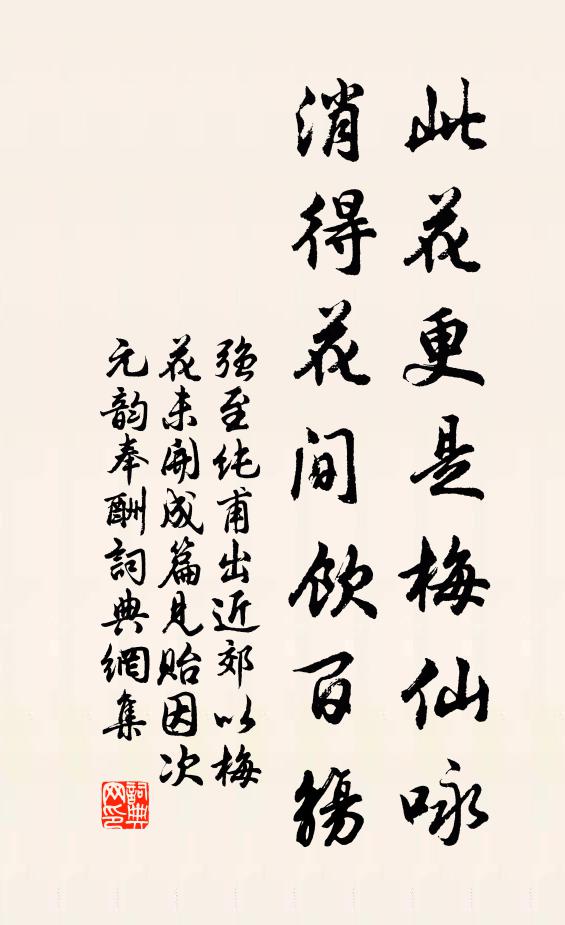 此花更是梅仙咏
消得花间饮百觴
强至纯甫出近郊以梅
花未開成篇見貽因次
元韵奉酬詞典網集
詞典
网印